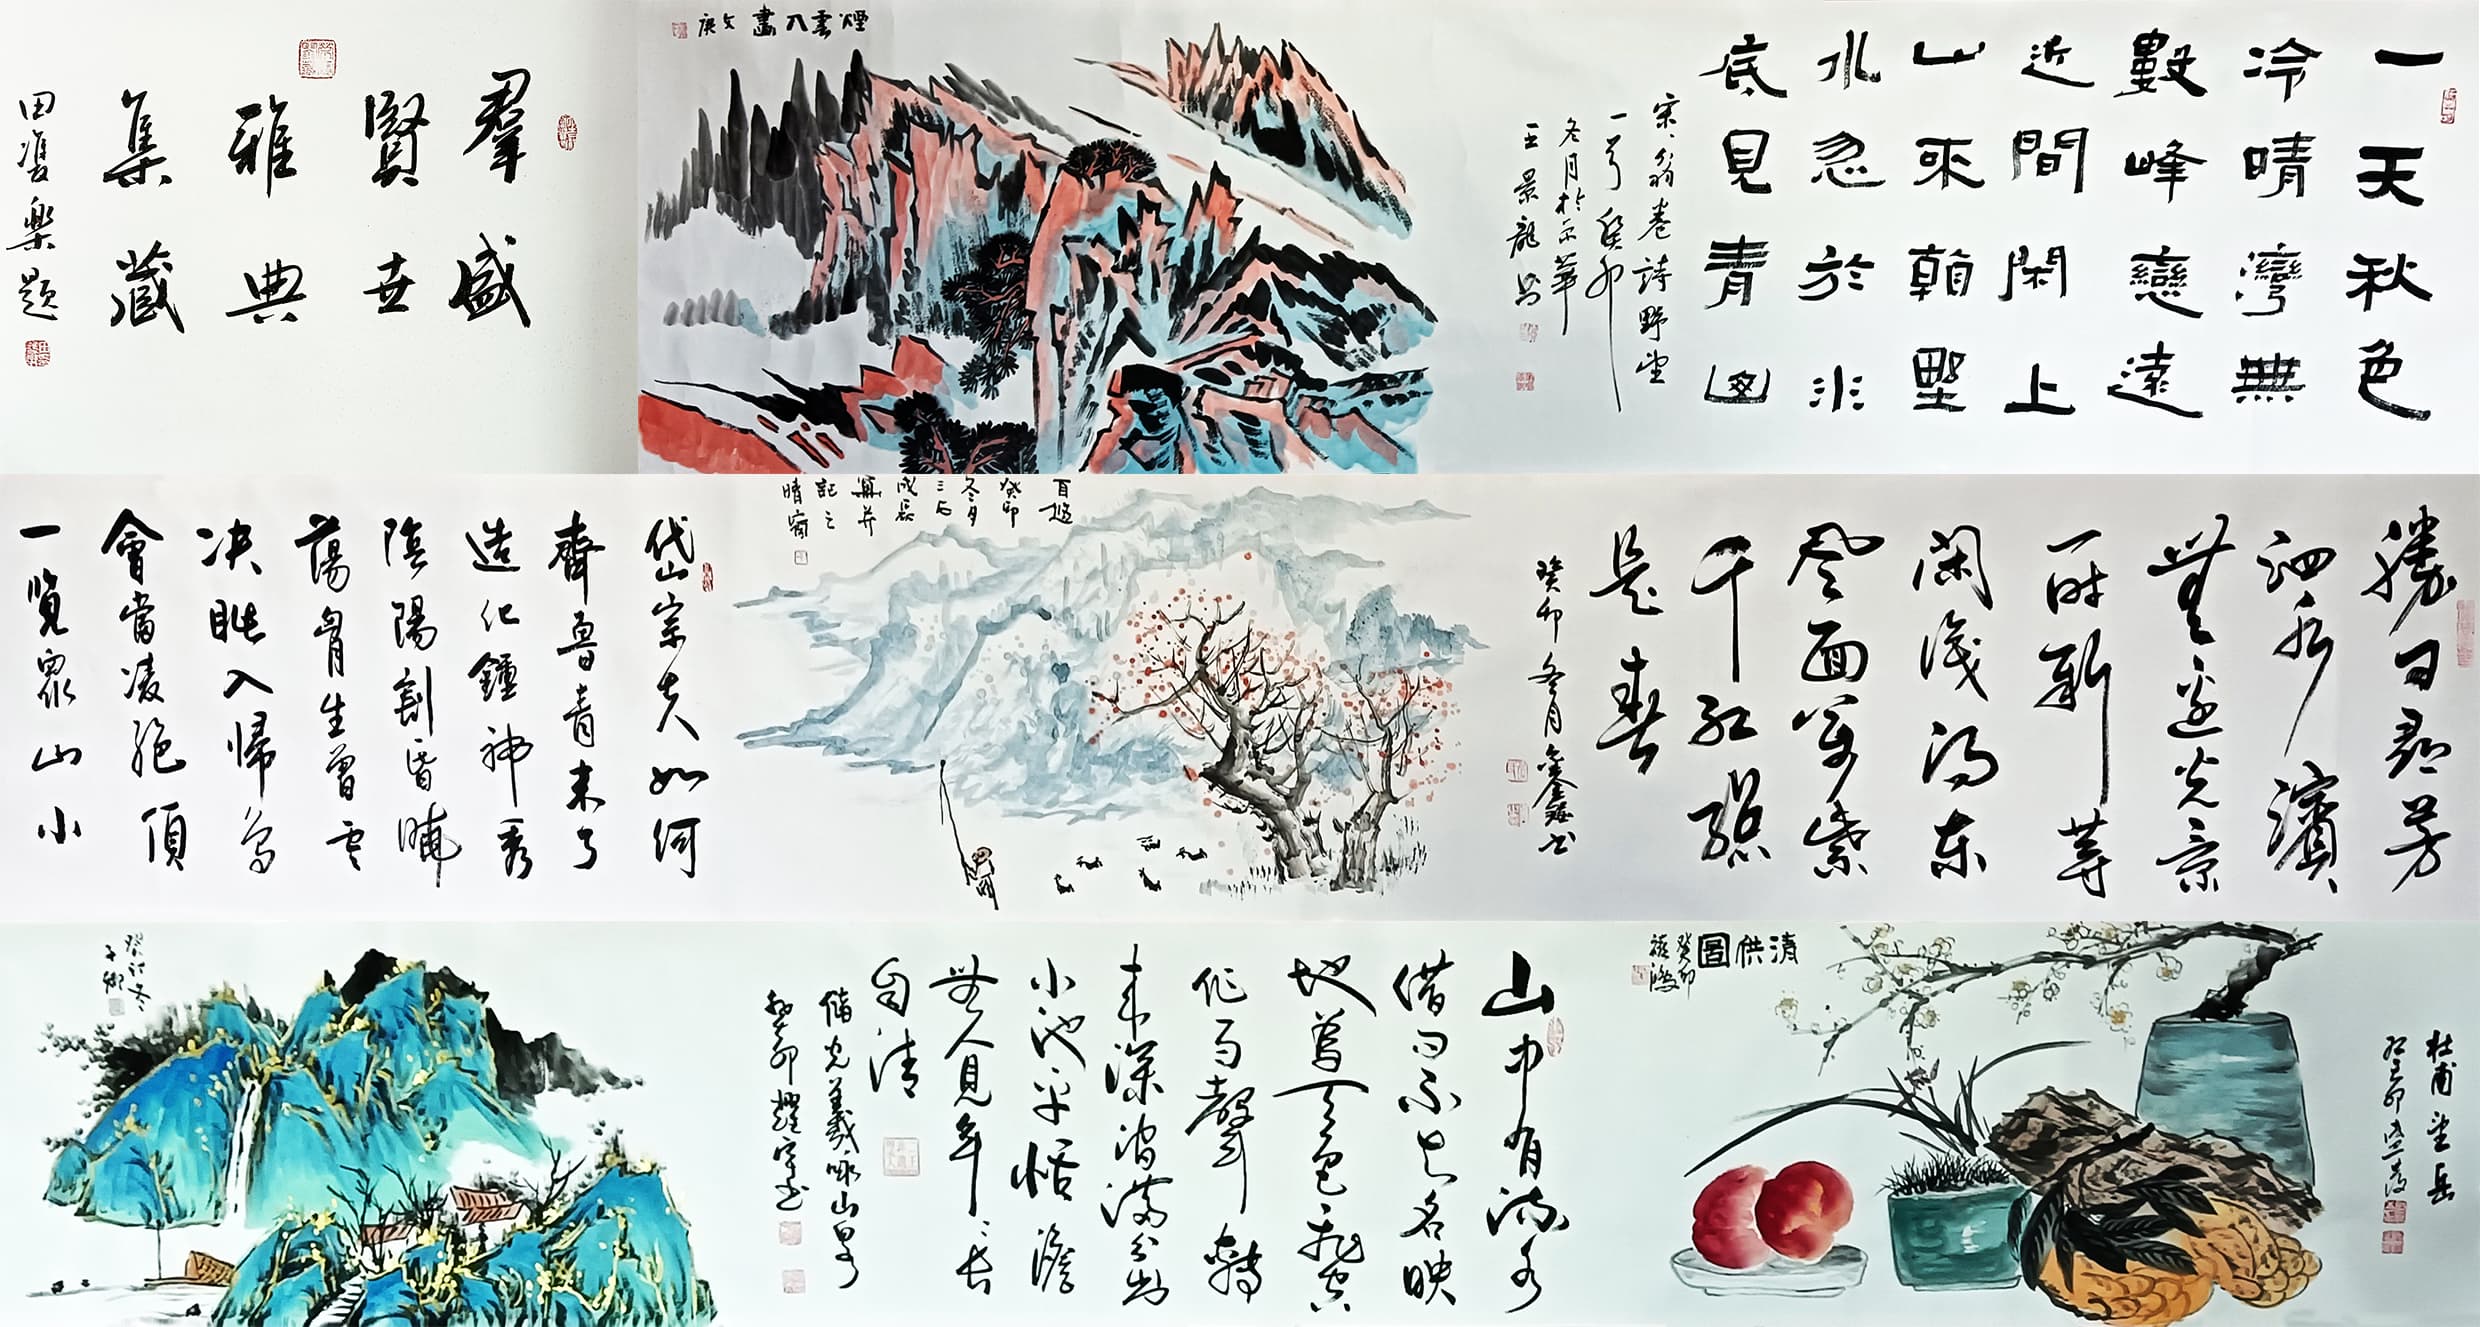 一天秋色
冷晴灣無
數峰巒遠
近間閑上
山來看野
水忽於水
底見青山
宋、翁卷詩野望
一首癸卯
冬月於京華
王景龍書
煙雲入畫
羣賢雅集
盛世典藏
勝日尋芳
泗水濱
無邊光景
一時新等
閑識得東
風面萬紫
千紅總
是春
癸卯冬月
癸卯
冬月
記之
晴窗
岱宗夫如何
齊魯青未了
造化鍾神秀
陰陽割昏曉
蕩胸生曾雲
决眥入歸鳥
會當凌絕頂
一覽衆山小
杜甫望岳
清供圖
癸卯
山中有流水
借問不知名映
地為天色飛空
作雨聲轉
來深澗滿分出
小池平恬澹
無人見年年長
自清
儲光羲詠山泉
癸卯冬